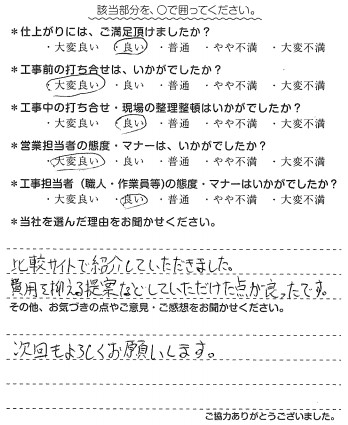 該当部分を、○で囲ってください。
＊仕上がりには、ご満足頂けましたか?
・大変良い ・良い ・普通 ・やや不満 ・大変不満
＊工事前の打ち合せは、いかがでしたか?
・大変良い ・良い ・普通 ・やや不満 ・大変不満
＊工事中の打ち合せ・現場の整理整頓はいかがでしたか?
・大変良い ・良い ・普通 ・やや不満 ・大変不満
＊営業担当者の態度・マナーは、いかがでしたか?
・大変良い ・良い ・普通 ・やや不満 ・大変不満
＊工事担当者（職人・作業員等)の態度・マナーはいかがでしたか?
・大変良い ・良い ・普通 ・やや不満 ・大変不満
＊当社を選んだ理由をお聞かせください。
比較サイトで紹介していただきました。
費用を抑える提案などしていただけた点が良ったです。
その他、お気づきの点やご意見・ご感想をお聞かせください。
次回もよろしくお願いします。
ご協力ありがとうございました。